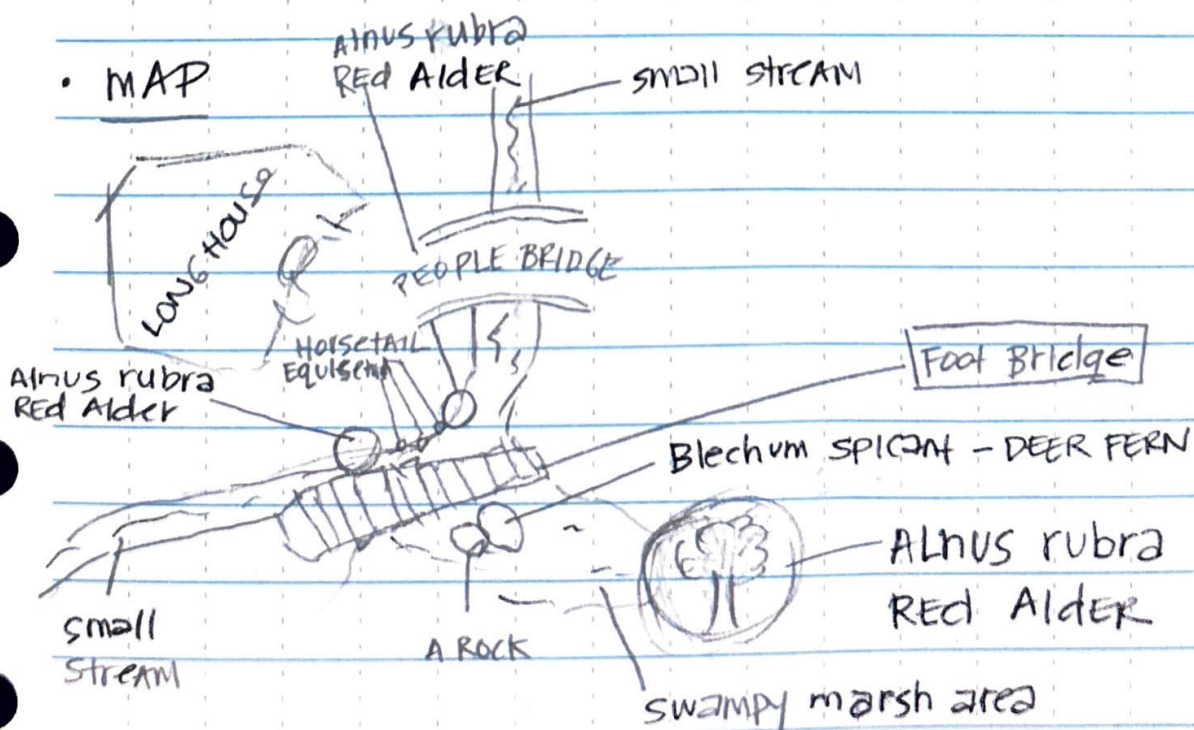 • MAP
Alnus rubra
REd AldER
small stream
LONG HOUSE
PEOPLE BRIDGE
HorsetAIL
Equisetum
Foot Bridge
Alnus rubra
REd Alder
Blechum SPICant - DEER FERN
ALnus rubra
REd AldER
small
StreAM
A ROCK
swampy marsh area